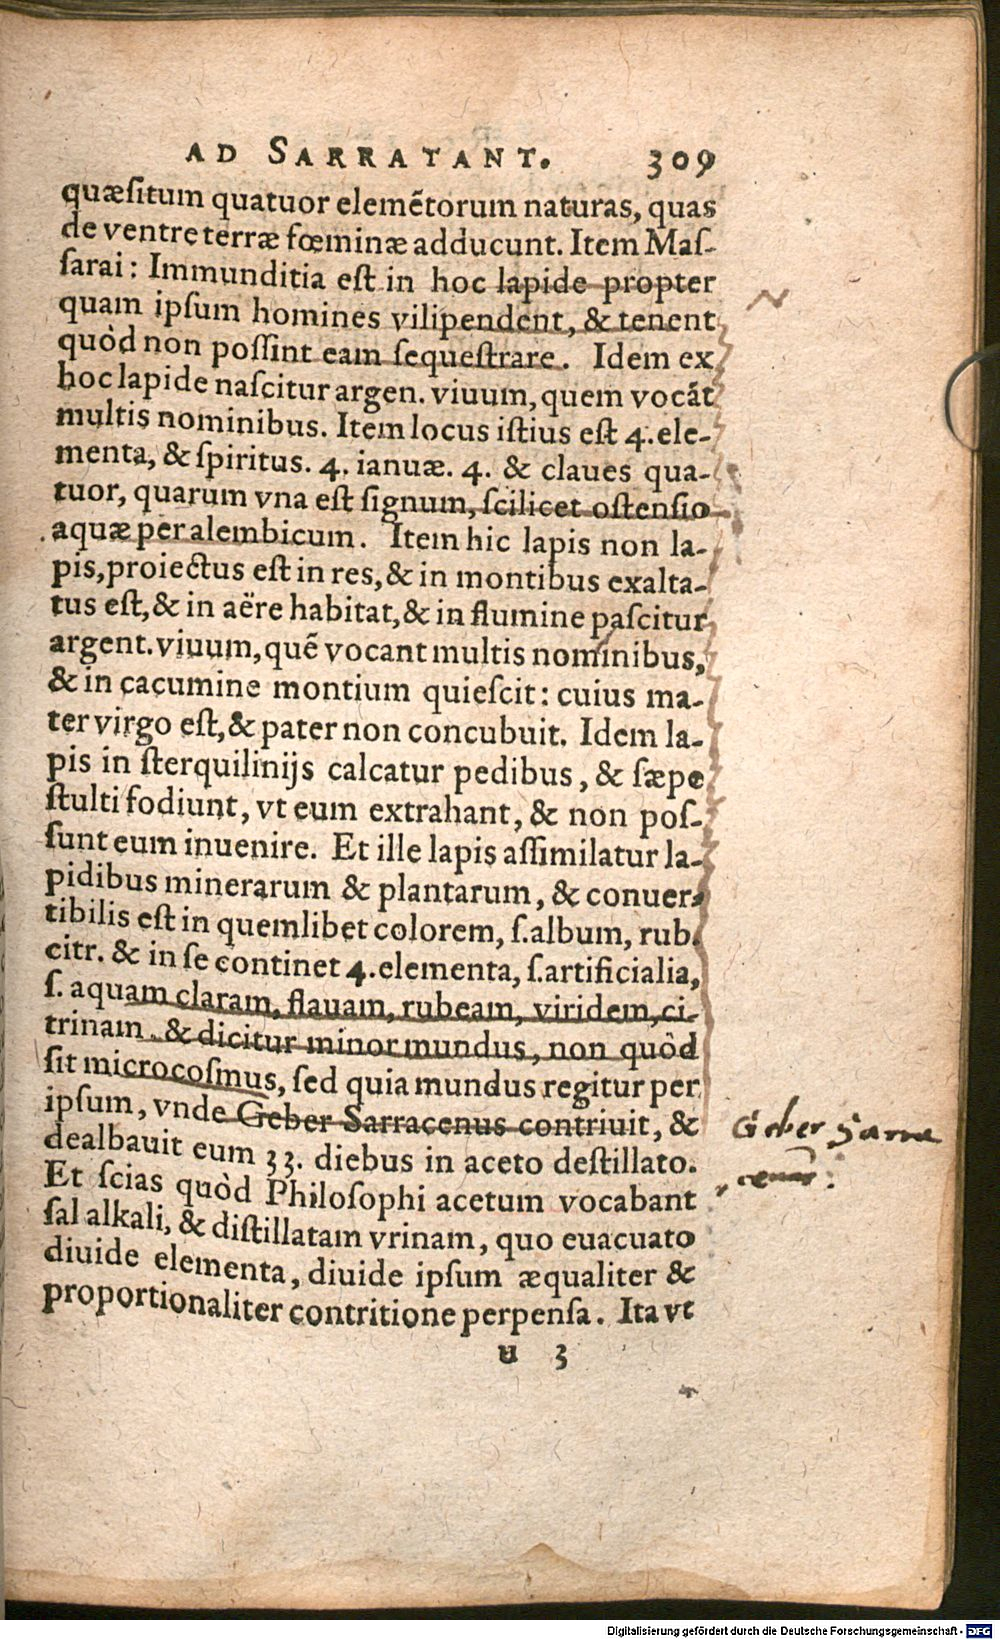 AD SARRATANT. 309
quæsitum quatuor elemētorum naturas, quas
de ventre terræ fœminæ adducunt. Item Mas-
sarai: Immunditia est in hoc lapide propter
quam ipsum homines vilipendent, & tenent
quòd non possint eam sequestrare. Idem ex
hoc lapide nascitur argen. viuum, quem vocāt
multis nominibus. Item locus istius est 4. ele-
menta, & spiritus. 4. ianuæ. 4. & claues qua-
tuor, quarum vna est signum, scilicet ostensio
aquæ per alembicum. Item hic lapis non la-
pis, proiectus est in res, & in montibus exalta-
tus est, & in aëre habitat, & in flumine pascitur
argent. viuum, quē vocant multis nominibus,
& in cacumine montium quiescit: cuius ma-
ter virgo est, & pater non concubuit. Idem la-
pis in sterquilinijs calcatur pedibus, & sæpe
stulti fodiunt, vt eum extrahant, & non pos-
sunt eum inuenire. Et ille lapis assimilatur la-
pidibus minerarum & plantarum, & conuer-
tibilis est in quemlibet colorem, s. album, rub.
citr. & in se continet 4. elementa, s. artificialia,
s. aquam claram, flauam, rubeam, viridem, ci-
trinam. & dicitur minor mundus, non quòd
sit microcosmus, sed quia mundus regitur per
ipsum, vnde Geber Sarracenus contriuit, &
dealbauit eum 33. diebus in aceto destillato.
Et scias quòd Philosophi acetum vocabant
sal alkali, & distillatam vrinam, quo euacuato
diuide elementa, diuide ipsum æqualiter &
proportionaliter contritione perpensa. Ita vt
u 3
Geber Sarra
cenus.
Digitalisierung gefördert durch die Deutsche Forschungsgemeinschaft - DFG